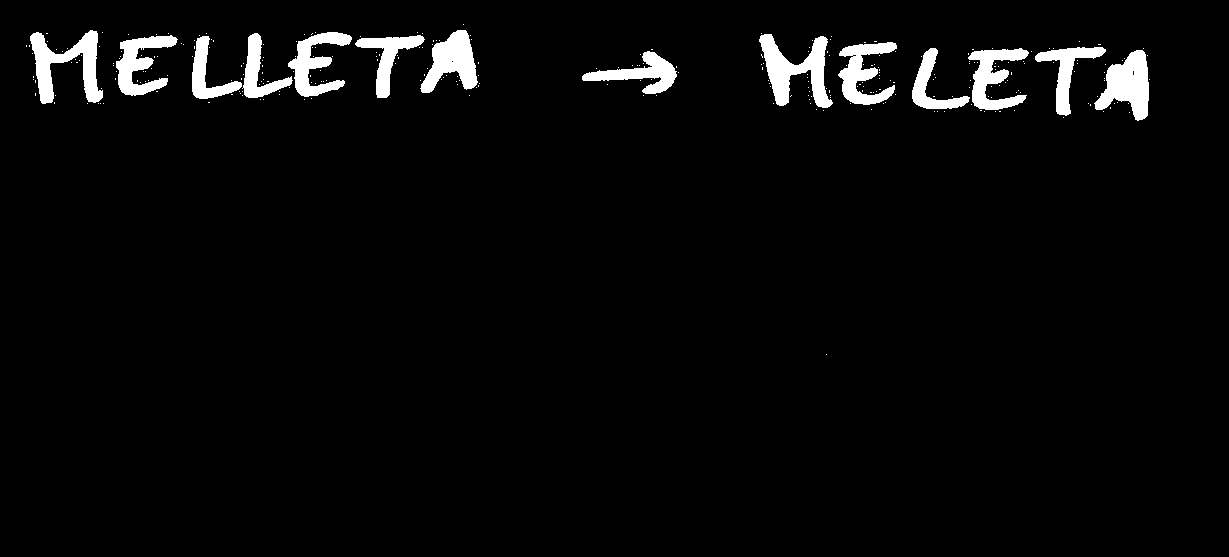 MELLETA → MELETA